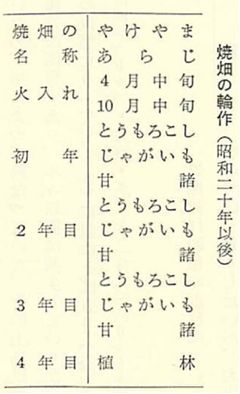 焼畑の輪作(昭和二十年以後)
焼畑の やけやま
名称 あらじ
火入れ 4月中旬
10月中旬
初年 とうもろこし
じゃがいも
甘諸
2年目 とうもろこし
じゃがいも
甘諸
3年目 とうもろこし
じゃがいも
甘諸
4年目 植林